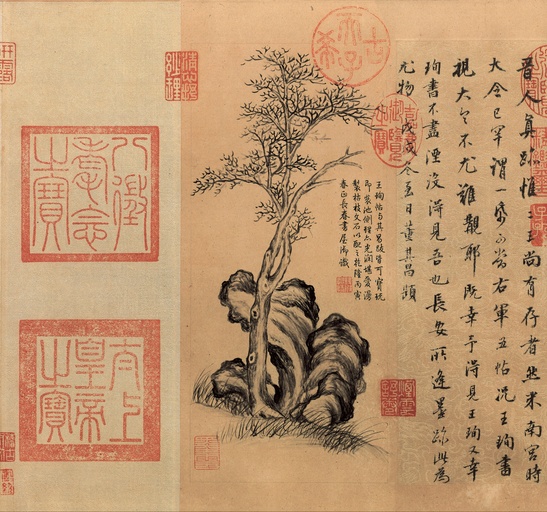 晉人真跡惟二王尚有存者然米南宮時
大令已罕謂一紙可當右軍五帖況王珣書
視大令不尤難覯耶既幸予得見王珣又幸
珣書不盡湮沒得見吾也長安所逢墨跡此為
尤物戊戌冬至日董其昌題
古希天子
王珣帖與其昌跋皆可寶玩
即裝池側理亦光潤堪愛漫
製枯枝文石以配之乾隆丙寅
春正長春書屋御識
八徵耄念
之寶
太上
皇帝
之寶